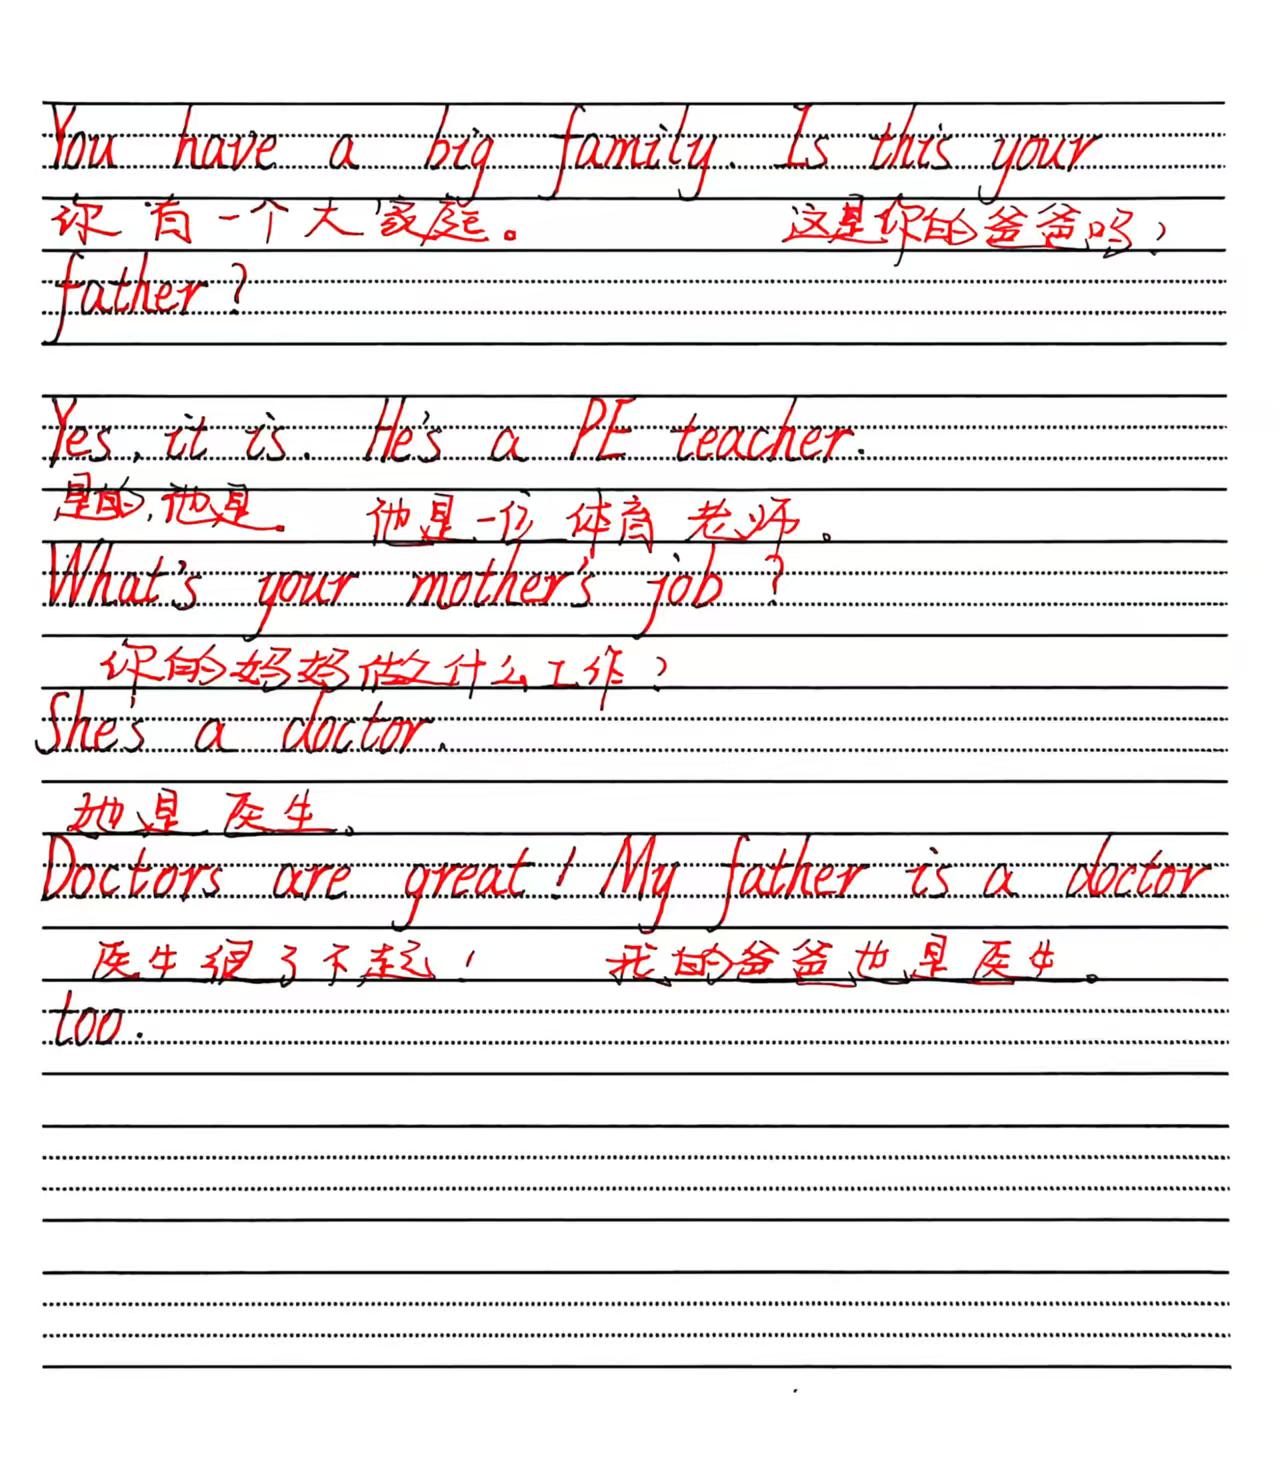 You have a big family. Is this your
你有一个大家庭。 这是你的爸爸吗?
father?
Yes, it is. He's a PE teacher.
是的,他是。 他是一位体育老师。
What's your mother's job?
你的妈妈做什么工作?
She's a doctor.
她是医生。
Doctors are great! My father is a doctor
医生很了不起! 我的爸爸也是医生。
too.